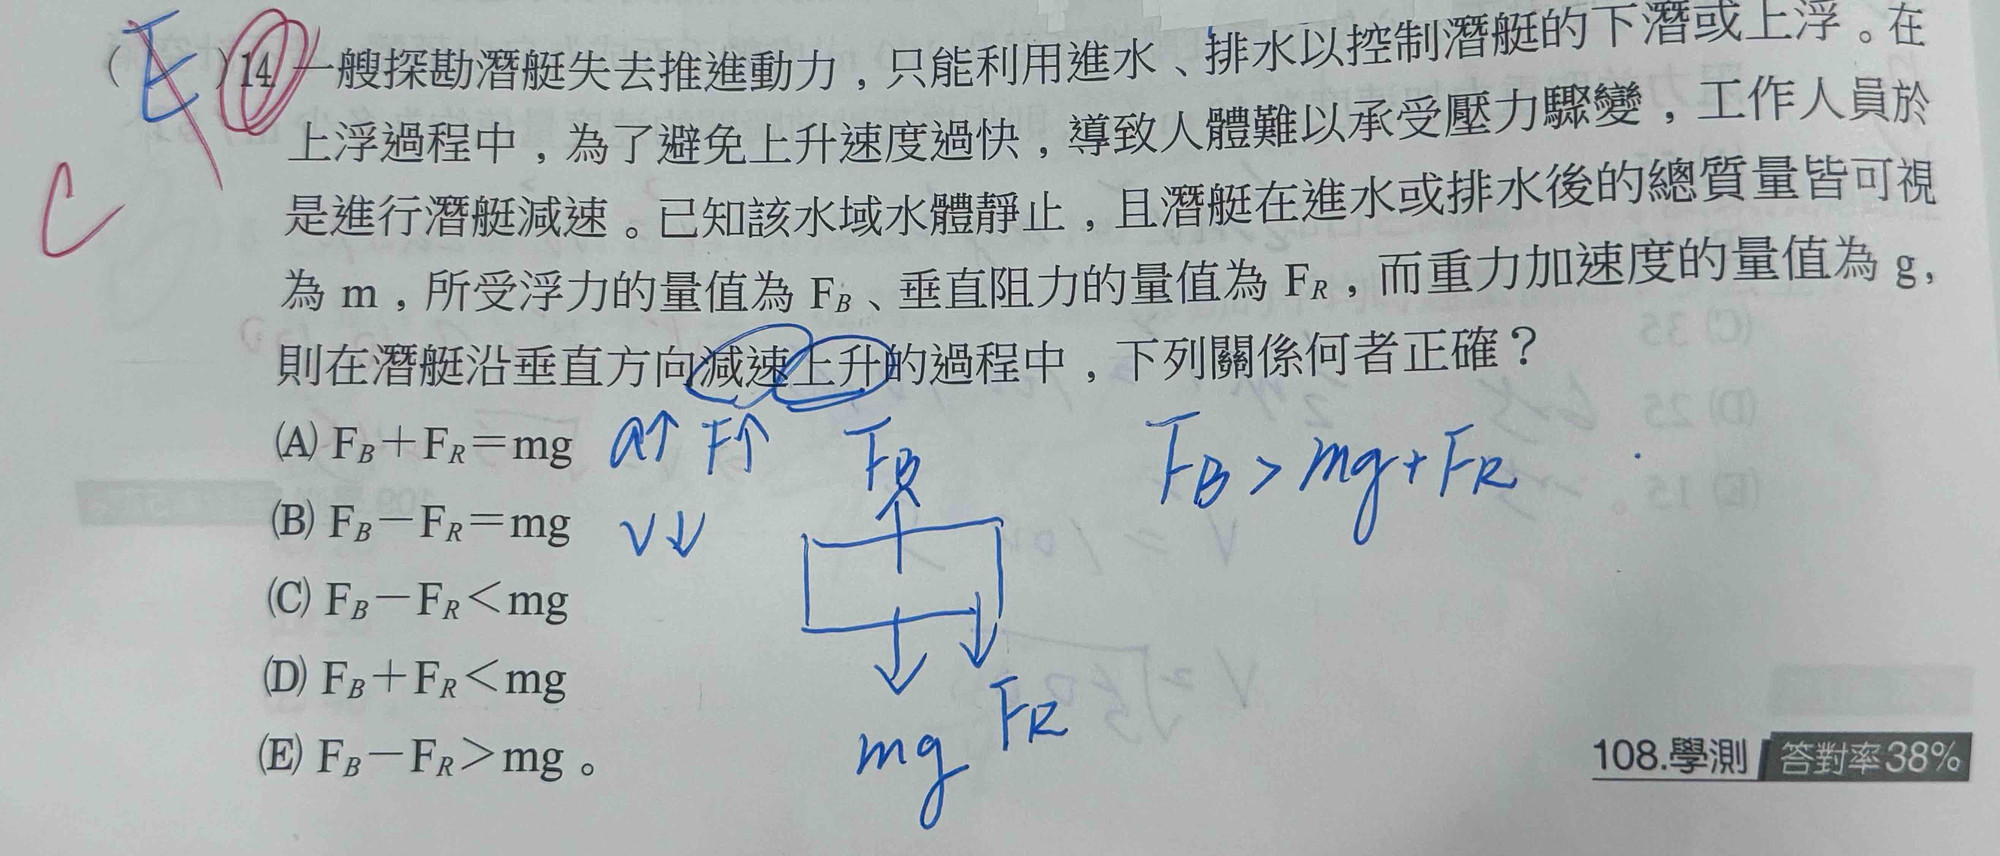 (E)14 一艘探勘潛艇失去推進動力，只能利用進水、排水以控制潛艇的下潛或上浮。在
上浮過程中，為了避免上升速度過快，導致人體難以承受壓力驟變，工作人員於
C
是進行潛艇減速。已知該水域水體靜止，且潛艇在進水或排水後的總質量皆可視
為 m，所受浮力的量值為 FB、垂直阻力的量值為 FR，而重力加速度的量值為 g，
則在潛艇沿垂直方向減速上升的過程中，下列關係何者正確？
(A) FB＋FR＝mg a↑ F↑ FB FB > mg + FR
(B) FB－FR＝mg V↓
(C) FB－FR＜mg
(D) FB＋FR＜mg
mg FR
(E) FB－FR＞mg。
108.學測 答對率38%